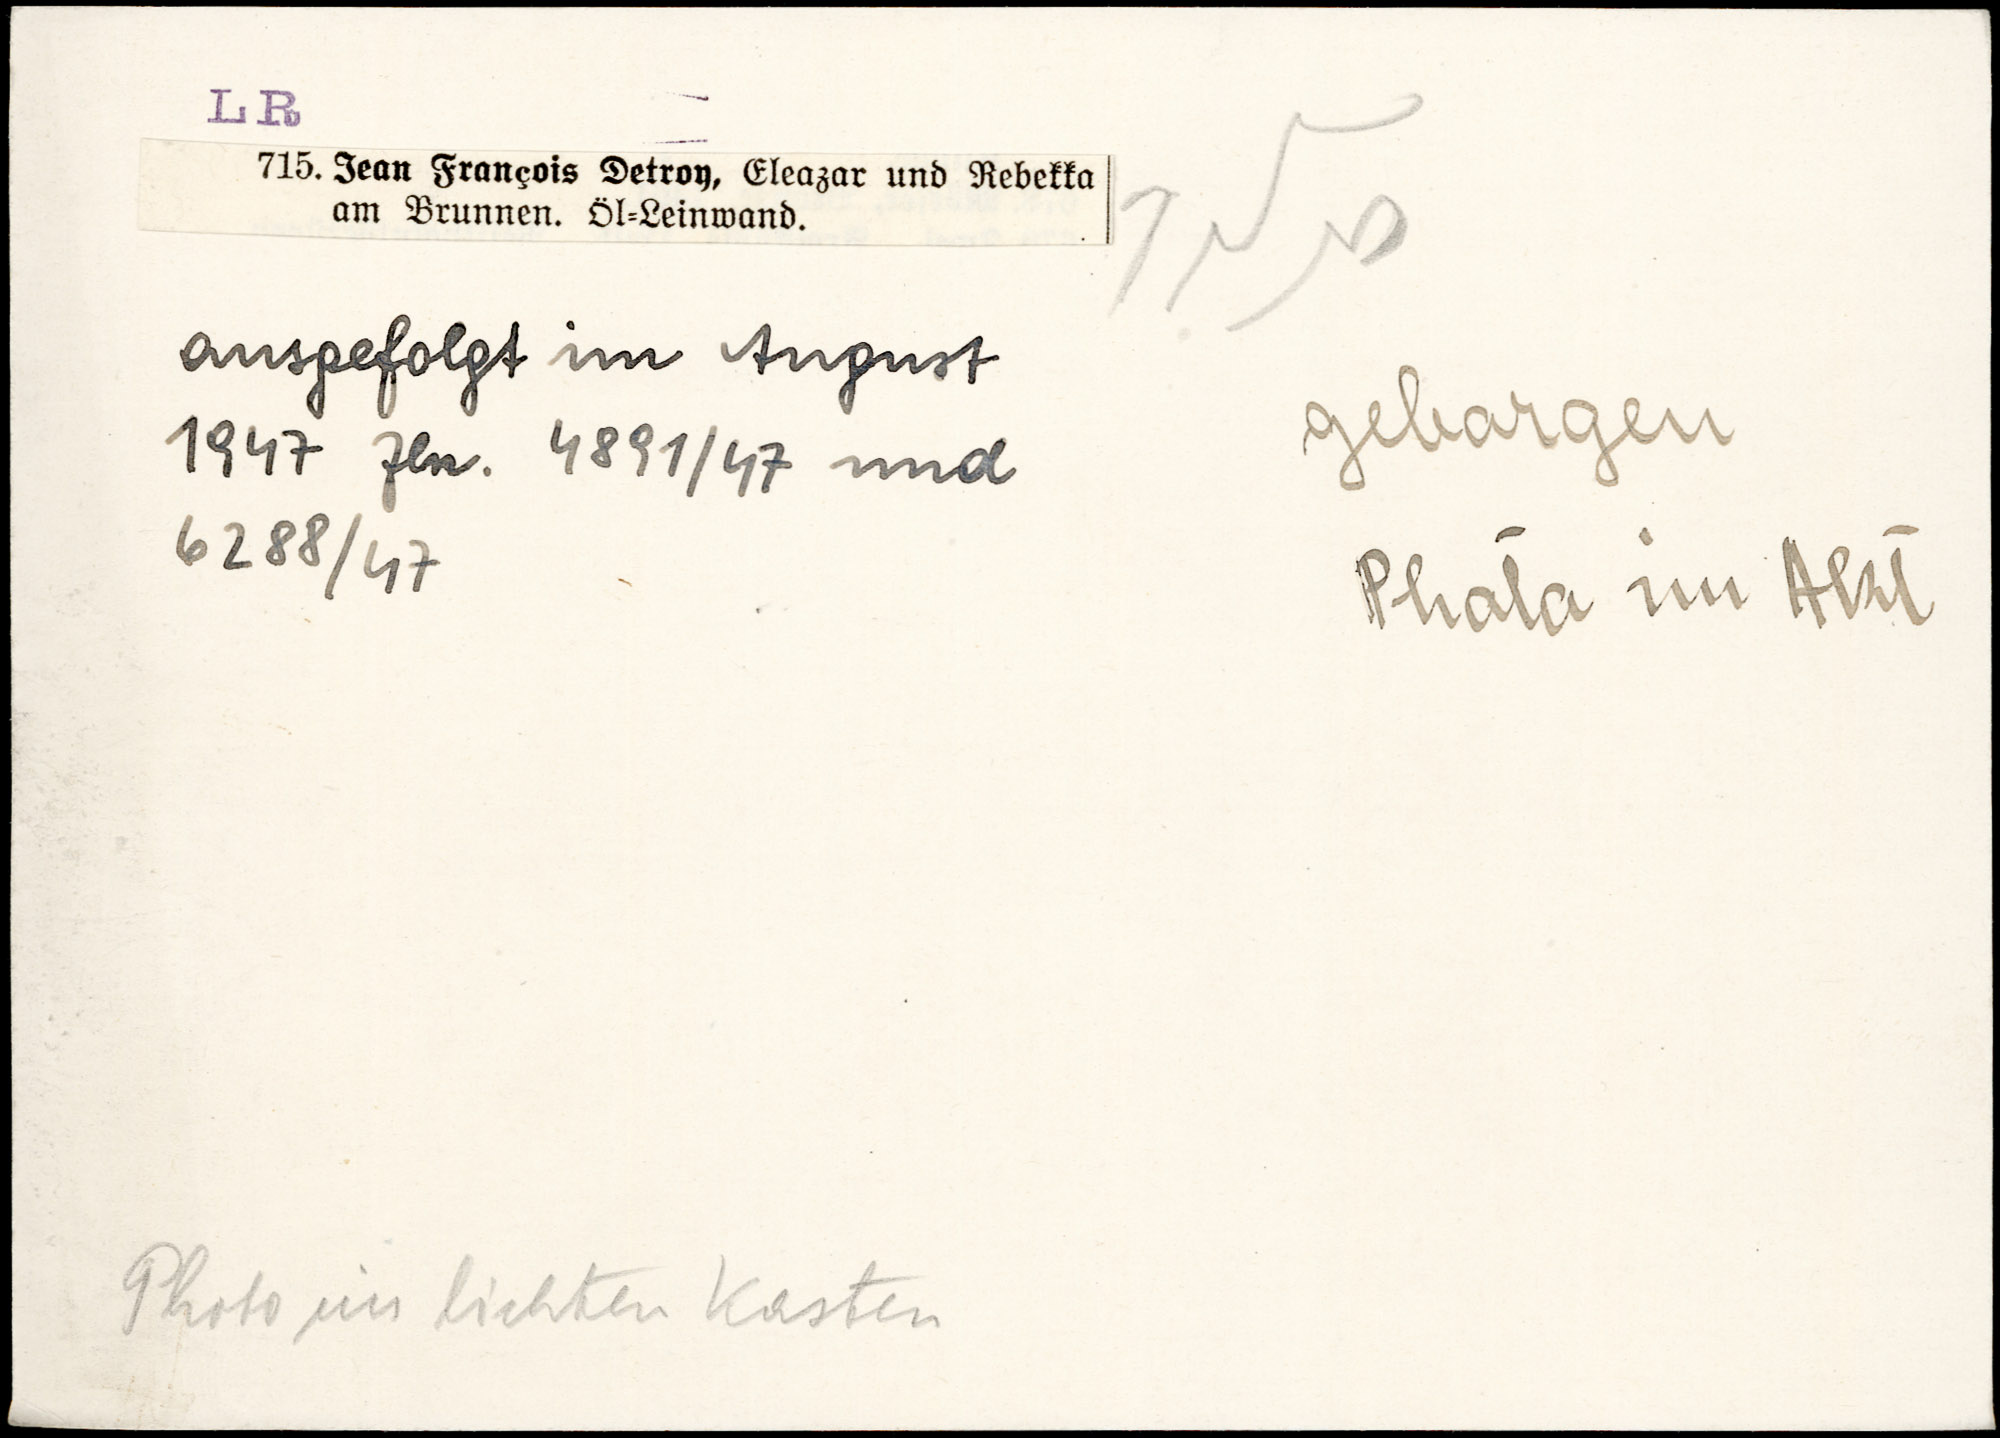 LR
715. Jean François Detroy, Eleazar und Rebekka
am Brunnen. Öl=Leinwand.
ausgefolgt im August
1947 Zln. 4891/47 und
6288/47
geborgen
Photo im Akt
Photo im lichten Kasten